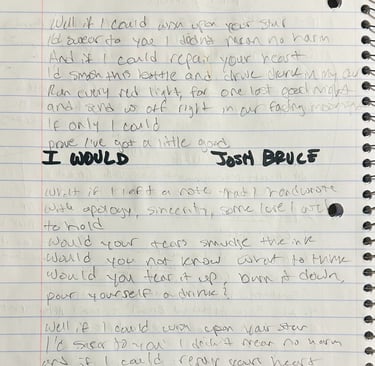 Well if I could wish upon your star
I'd swear to you I didn't mean no harm
And if I could repair your heart
I'd smash this bottle and drive drunk in my car
Run every red light, for one last good night
and send us off right in our fading
If only I could
prove I've got a little good
I WOULD JOSH BRUCE
What if I left a note that I handwrote
with apology, sincerity, some love I
to hold
Would your tears smudge the ink
Would you not know what to think
Would you tear it up, burn it down,
pour yourself a drink?
Well if I could wish upon your star
I'd swear to you I didn't mean no harm
and if I could repair your heart